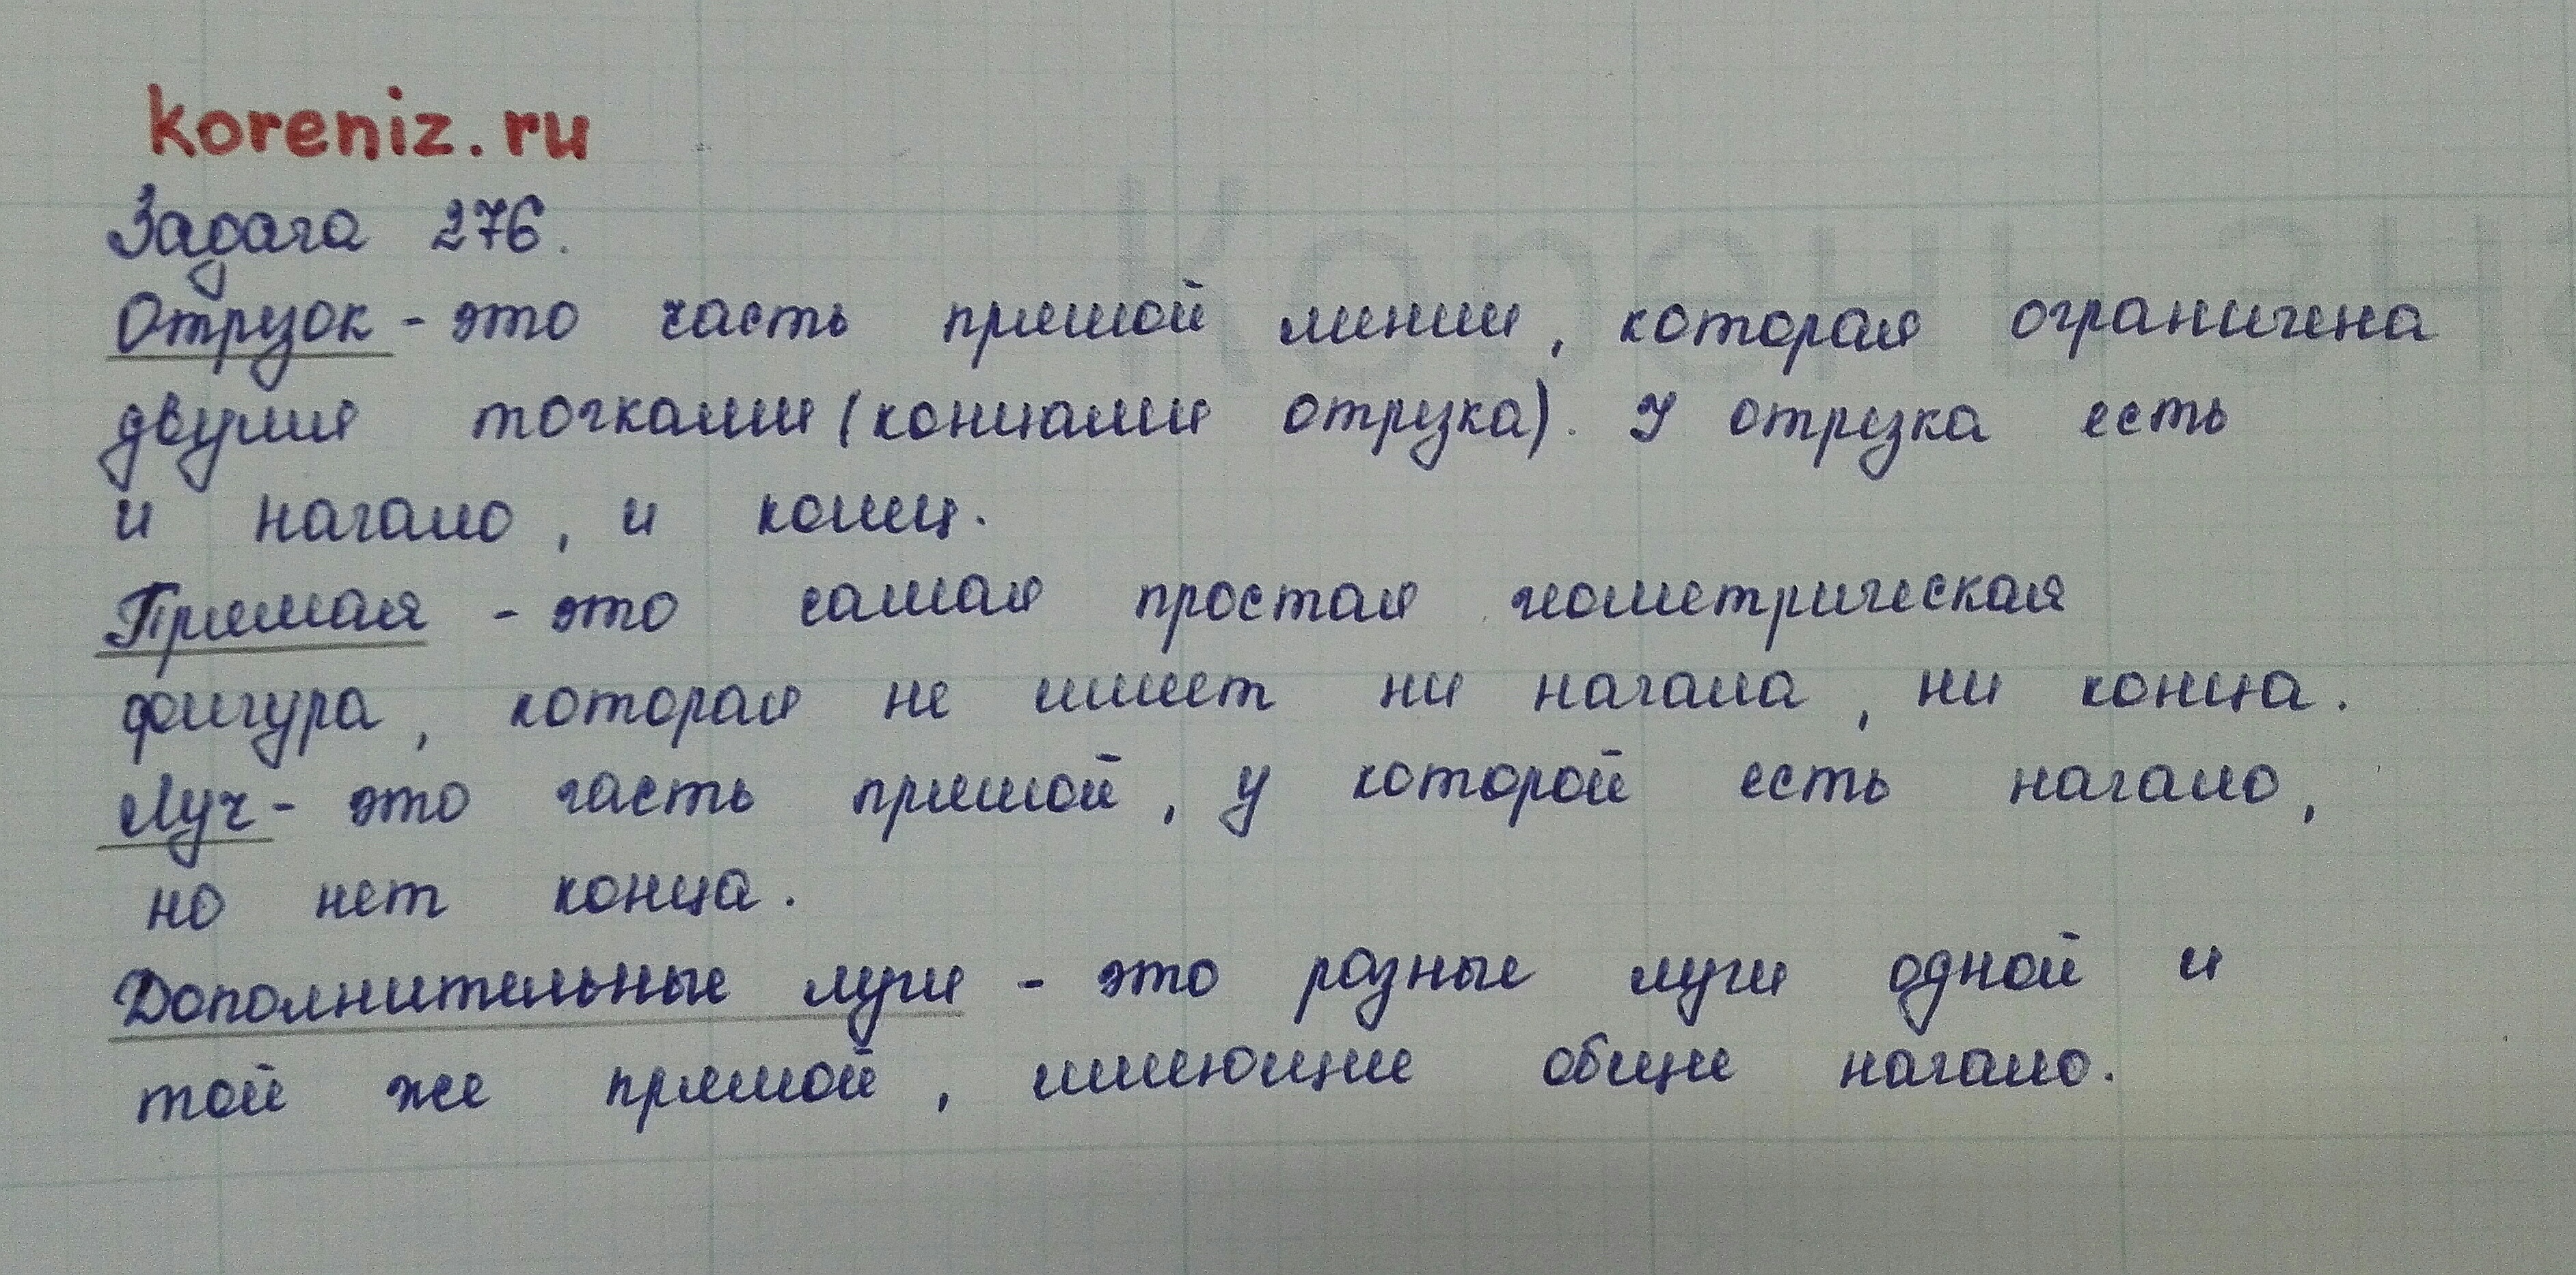 koreniz.ru
Задача 276.
Отрезок - это часть прямой линии, которая ограничена
двумя точками (концами отрезка). У отрезка есть
и начало, и конец.
Прямая - это самая простая геометрическая
фигура, которая не имеет ни начала, ни конца.
Луч - это часть прямой, у которой есть начало,
но нет конца.
Дополнительные лучи - это разные лучи одной и
той же прямой, имеющие общее начало.